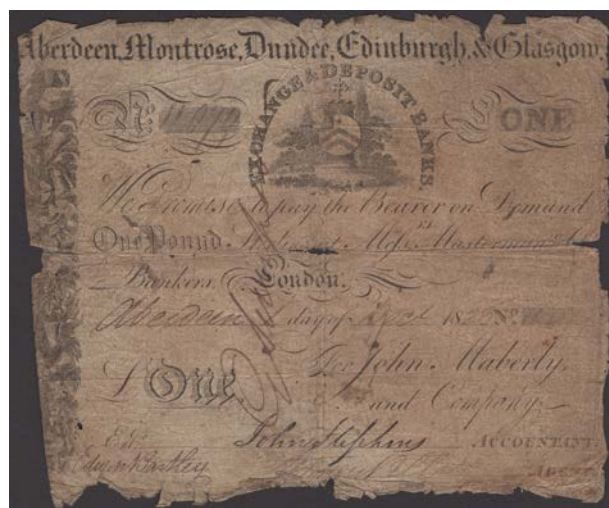 Aberdeen, Montrose, Dundee, Edinburgh, & Glasgow,
EXCHANGE & DEPOSIT BANKS.
No
ONE
We Promise to pay the Bearer on Demand
One Pound at Messrs Masterman & Co
Bankers, London.
Aberdeen day of 18 No.
£ One For John Maberly
and Company
John Stephens ACCOUNTANT.
AGENT.